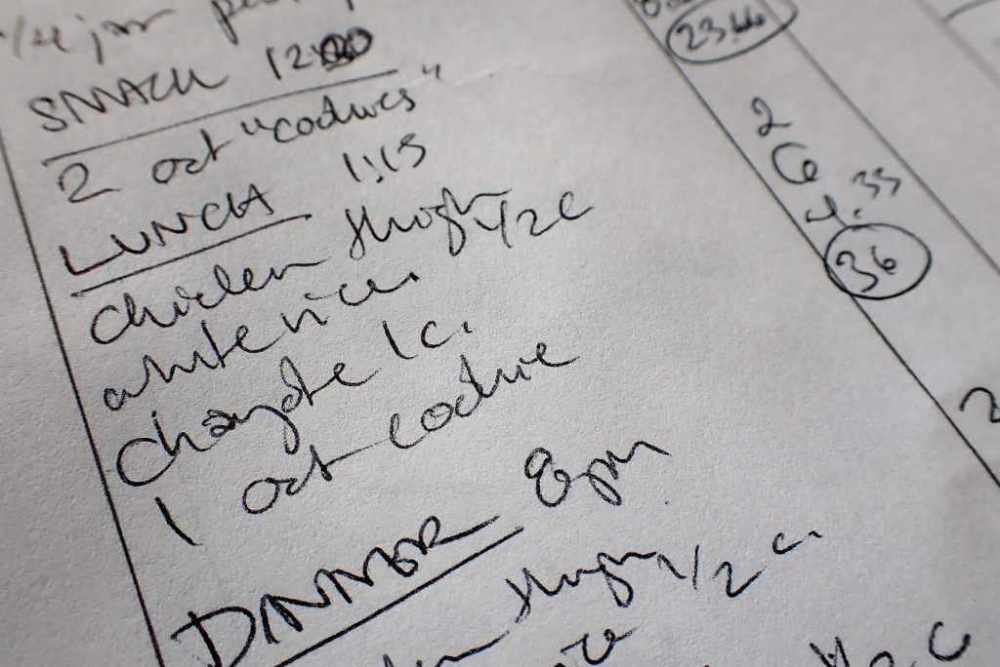 1/4 jar
SNACK 12:00
2 oat "cookies"
LUNCH 1:15
chicken thigh
1/2 c
white rice
chayote 1 c.
1 oat cookie
DINNER 8pm
thigh 1/2 c.
rice
1/2 c
23.44
2
6
.33
36
2